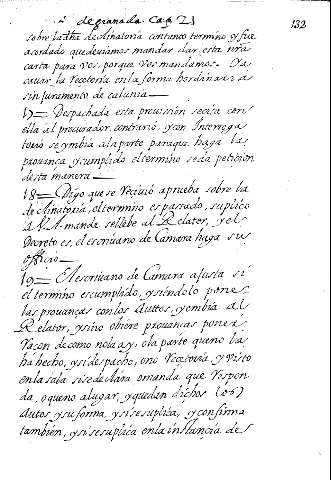 de granada Cap 21
132
sobre la dha declinatoria contanto termino y fue
acordado que deuiamos mandar dar esta nra
carta para vos, porque vos mandamos. Pa
causar la Recetoria en la forma hordinaria
sin juramento de calunia
17 = Despachada esta prouission se cita con
ella al procurador contrario, y con Interroga
torio se ymbia a la parte para que haga la
prouança y cumplido el termino se da peticion
desta manera
18 = Digo que se Reciuio aprueba sobre la
declinatoria, el termino es passado, suplico
a V. A. mande se llebe al Relator, y el
Decreto es, el escriuano de Camara haga su
officio
19 = El escriuano de Camara ajusta si
el termino es cumplido, y siendolo pone
las prouanças con los Auttos, y embia al
Relator, y si no obiere prouanças pone a
Raçon de como no la ay, o la parte que no la
ha hecho, y si despacho, o no Recetoria, y Visto
en la sala si se declara o manda que Respon
da, o que no a lugar, y quedan dichos los
Autos y su forma y si se suplica, y confirma
tambien, y si se suplica en la instançia de